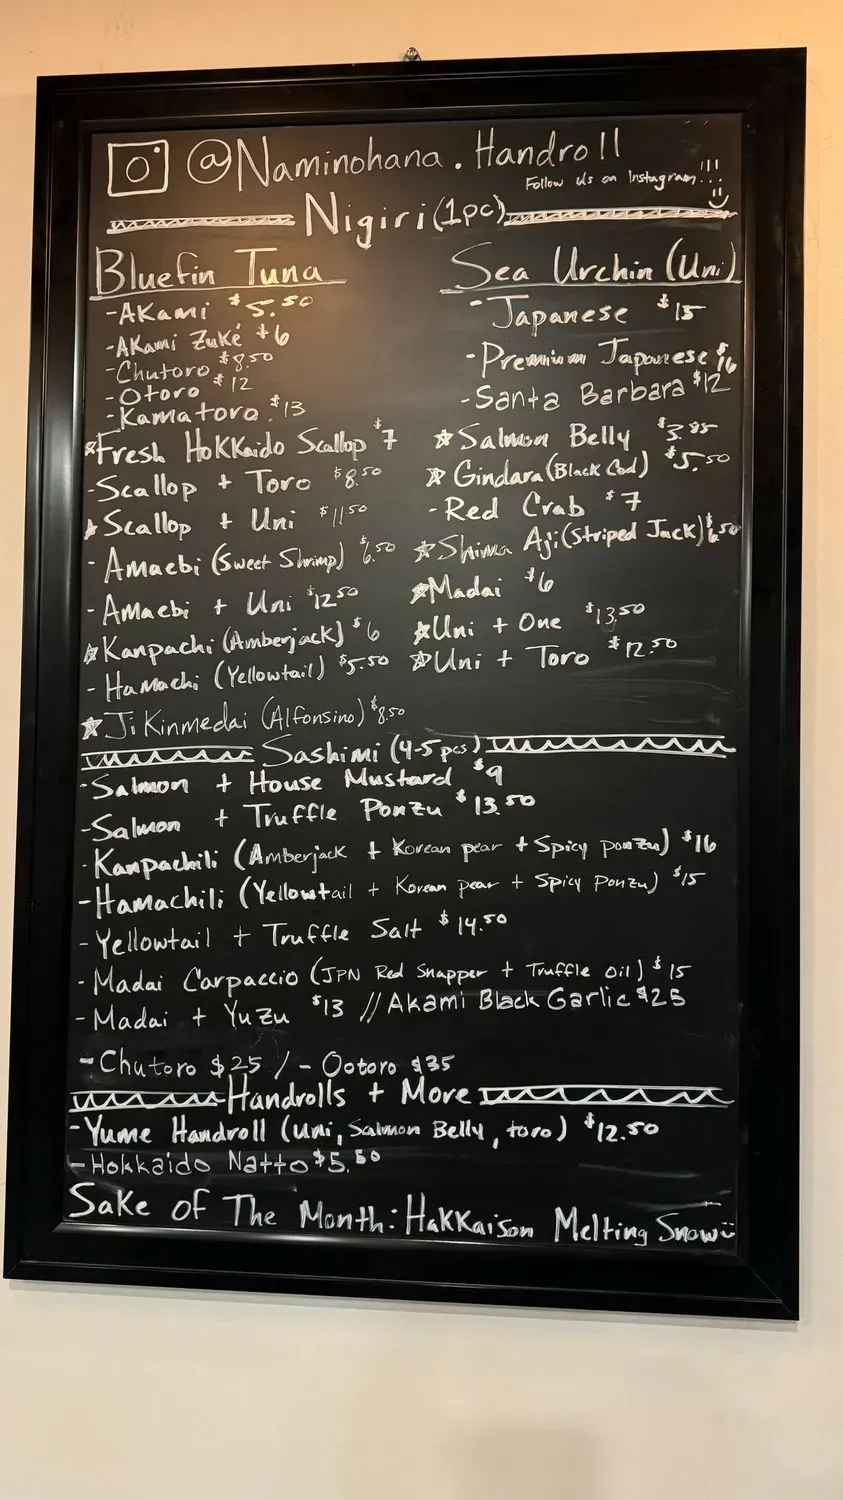 @Naminohana.Handroll
Follow Us on Instagram!!!
Nigiri (1pc)
Bluefin Tuna
-Akami $5.50
-Akami Zuké $6
-Chutoro $8.50
-Otoro $12
-Kamatoro $13
☆Fresh Hokkaido Scallop $7
-Scallop + Toro $8.50
☆Scallop + Uni $11.50
-Amaebi (Sweet Shrimp) $6.50
-Amaebi + Uni $12.50
☆Kanpachi (Amberjack) $6
-Hamachi (Yellowtail) $5.50
☆Ji Kinmedai (Alfonsino) $8.50
Sea Urchin (Uni)
-Japanese $15
-Premium Japanese $16
-Santa Barbara $12
☆Salmon Belly $3.85
☆Gindara (Black Cod) $5.50
-Red Crab $7
☆Shima Aji (Striped Jack) $6.50
☆Madai $6
☆Uni + One $13.50
☆Uni + Toro $12.50
Sashimi (4-5pcs)
-Salmon + House Mustard $9
-Salmon + Truffle Ponzu $13.50
-Kanpachili (Amberjack + Korean pear + Spicy ponzu) $16
-Hamachili (Yellowtail + Korean pear + Spicy Ponzu) $15
-Yellowtail + Truffle Salt $14.50
-Madai Carpaccio (JPN Red Snapper + Truffle oil) $15
-Madai + Yuzu $13 // Akami Black Garlic $25
-Chutoro $25 / - Ootoro $35
Handrolls + More
-Yume Handroll (Uni, Salmon Belly, toro) $12.50
-Hokkaido Natto $5.50
Sake Of The Month: Hakkaison Melting Snow